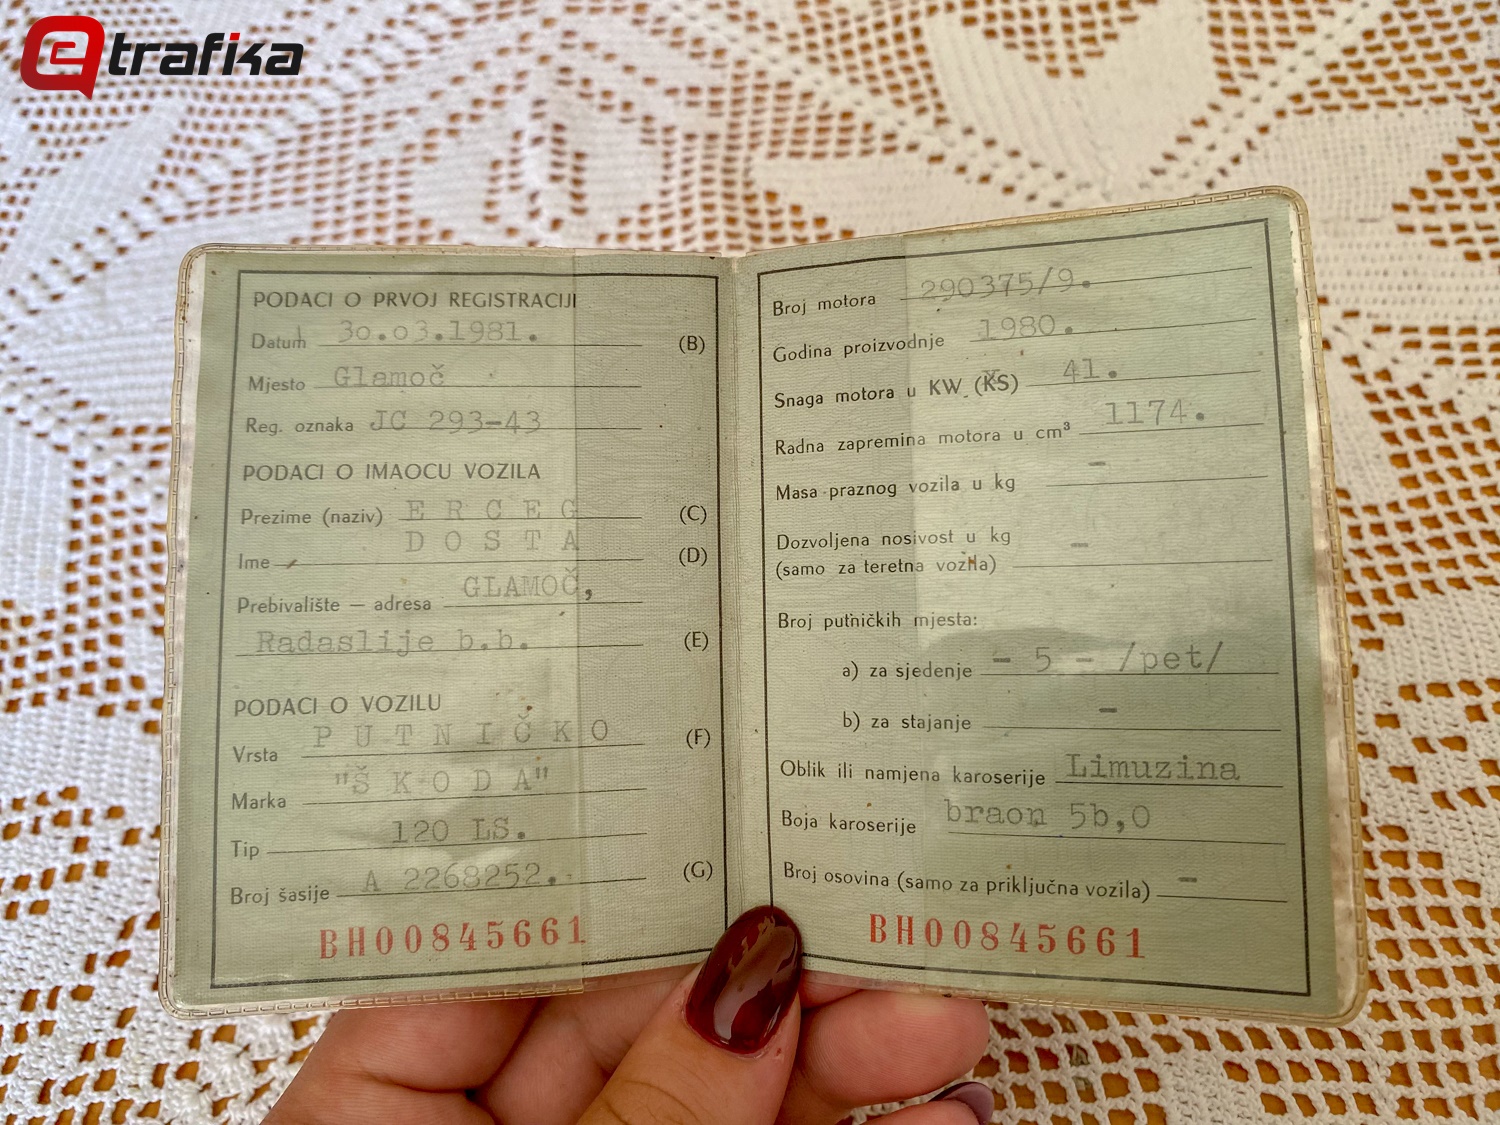 etrafika
PODACI O PRVOJ REGISTRACIJI
Datum 30.03.1981. (B)
Mjesto Glamoč
Reg. oznaka JC 293-43
PODACI O IMAOCU VOZILA
Prezime (naziv) E R C E G (C)
D O S T A
Ime (D)
GLAMOČ,
Prebivalište — adresa
Radaslije b.b. (E)
PODACI O VOZILU
P U T N I Č K O
Vrsta (F)
Marka "Š K O D A"
Tip 120 LS.
Broj šasije A 2268252. (G)
BH00845661
Broj motora 290375/9.
Godina proizvodnje 1980.
Snaga motora u KW (KS) 41.
Radna zapremina motora u cm³ 1174.
Masa praznog vozila u kg -
Dozvoljena nosivost u kg -
(samo za teretna vozila)
Broj putničkih mjesta:
a) za sjedenje - 5 - /pet/
b) za stajanje -
Oblik ili namjena karoserije Limuzina
Boja karoserije braon 5b,0
Broj osovina (samo za priključna vozila) -
BH00845661